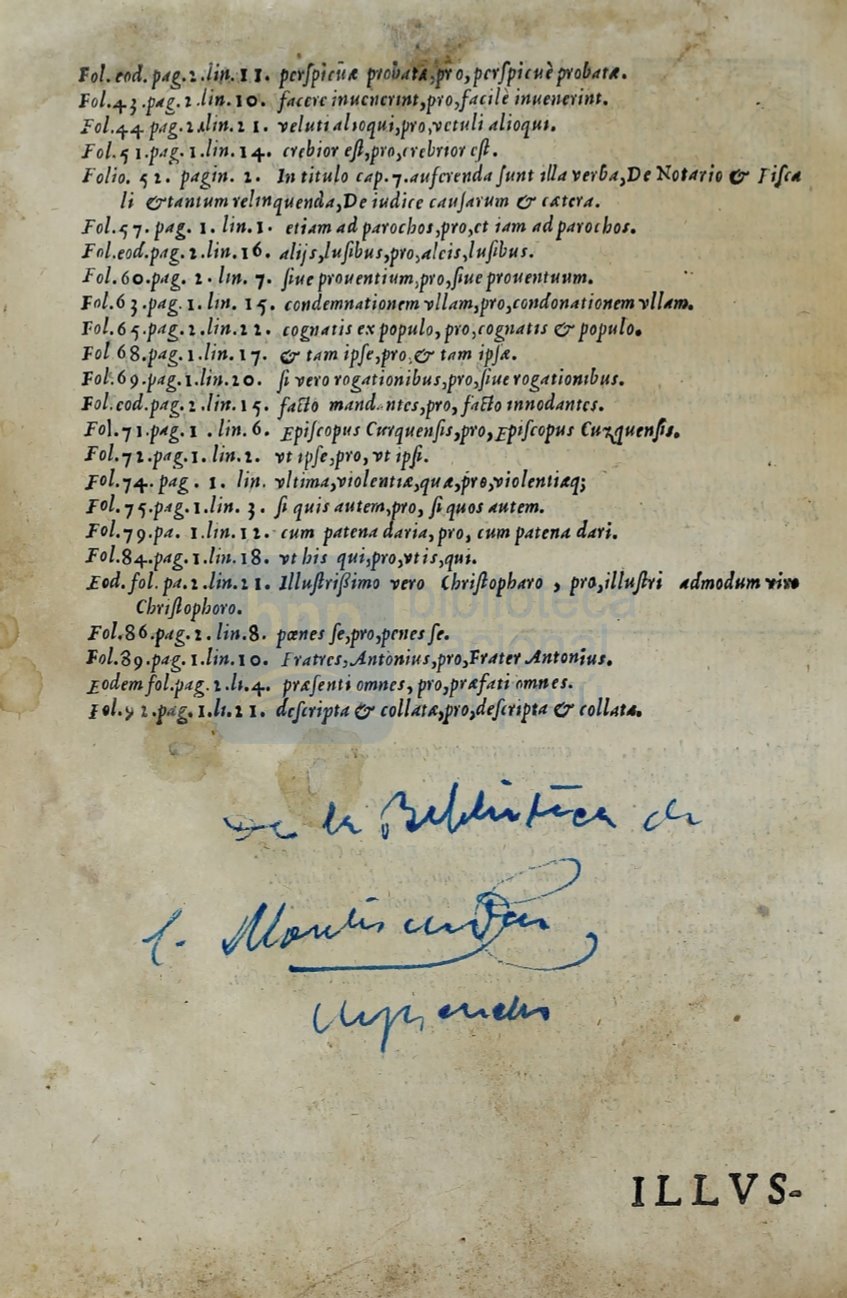 Fol. eod. pag. 2. lin. 11. perſpicuæ probatæ, pro, perſpicuè probatæ.
Fol. 43. pag. 2. lin. 10. facere inuenerint, pro, facilè inuenerint.
Fol. 44 pag. 2. lin. 21. veluti alioqui, pro, vetuli alioqui.
Fol. 51. pag. 1. lin. 14. crebior eſt, pro, crebrior eſt.
Folio. 52. pagin. 2. In titulo cap. 7. auferenda ſunt illa verba, De Notario & Fiſca
li & tantum relinquenda, De iudice cauſarum & cætera.
Fol. 57. pag. 1. lin. 1. etiam ad parochos, pro, et iam ad parochos.
Fol. eod. pag. 2. lin. 16. alijs, luſibus, pro, aleis, luſibus.
Fol. 60. pag. 2. lin. 7. ſiue prouentium, pro, ſiue prouentuum.
Fol. 63. pag. 1. lin. 15. condemnationem vllam, pro, condonationem vllam.
Fol. 65. pag. 2. lin. 22. cognatis ex populo, pro, cognatis & populo.
Fol 68. pag. 1. lin. 17. & tam ipſe, pro, & tam ipſæ.
Fol. 69. pag. 1. lin. 20. ſi vero rogationibus, pro, ſiue rogationibus.
Fol. eod. pag. 2. lin. 15. facto mandantes, pro, facto innodantes.
Fol. 71. pag. 1. lin. 6. Epiſcopus Curquenſis, pro, Epiſcopus Cuzquenſis.
Fol. 72. pag. 1. lin. 2. vt ipſe, pro, vt ipſi.
Fol. 74. pag. 1. lin. vltima, violentiæ, quæ, pro, violentiæq;
Fol. 75. pag. 1. lin. 3. ſi quis autem, pro, ſi quos autem.
Fol. 79. pa. 1. lin. 12. cum patena daria, pro, cum patena dari.
Fol. 84. pag. 1. lin. 18. vt his qui, pro, vt is, qui.
Eod. fol. pa. 2. lin. 21. Illuſtriſſimo vero Chriſtopharo, pro, illuſtri admodum viro
Chriſtophoro.
Fol. 86. pag. 2. lin. 8. pœnes ſe, pro, penes ſe.
Fol. 89. pag. 1. lin. 10. Fratres, Antonius, pro, Frater Antonius.
Eodem fol. pag. 2. li. 4. præſenti omnes, pro, præfati omnes.
Fol. 92. pag. 1. li. 21. deſcripta & collatæ, pro, deſcripta & collata.
bnp biblioteca
nacional
De la Biblioteca de
ILLVS-